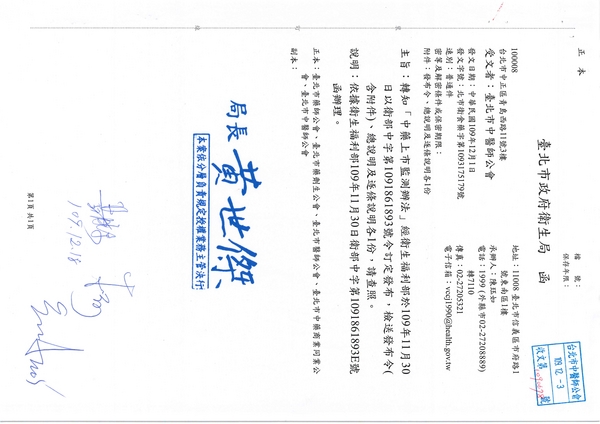 正本
檔　號：
保存年限：
臺北市政府衛生局　函
地址：11008 臺北市信義區市府路1
號東南區1樓
承辦人：陳鈺如
電話：1999 (外縣市02-27208889)
轉7110
傳真：02-27205321
電子信箱：vccj1990@health.gov.tw
100008
台北市中正區青島西路11號3樓
受文者：臺北市中醫師公會
發文日期：中華民國109年12月1日
發文字號：北市衛食藥字第1093175179號
速別：普通件
密等及解密條件或保密期限：
附件：發布令、總說明及逐條說明各1份
主旨：轉知「中藥上市監測辦法」經衛生福利部於109年11月30
日以衛部中字第1091861893號令訂定發布，檢送發布令(
含附件)、總說明及逐條說明各1份，請查照。
說明：依據衛生福利部109年11月30日衛部中字第1091861893E號
函辦理。
正本：臺北市藥師公會、臺北市藥劑生公會、臺北市中醫師公會、臺北市中藥商業同業公
會、臺北市中醫師公會
副本：
局長 黃世傑
本案依分層負責規定授權業務主管決行
台北市中醫師公會
109.12.-3
收文第
號
109.12.18
第1頁 共1頁